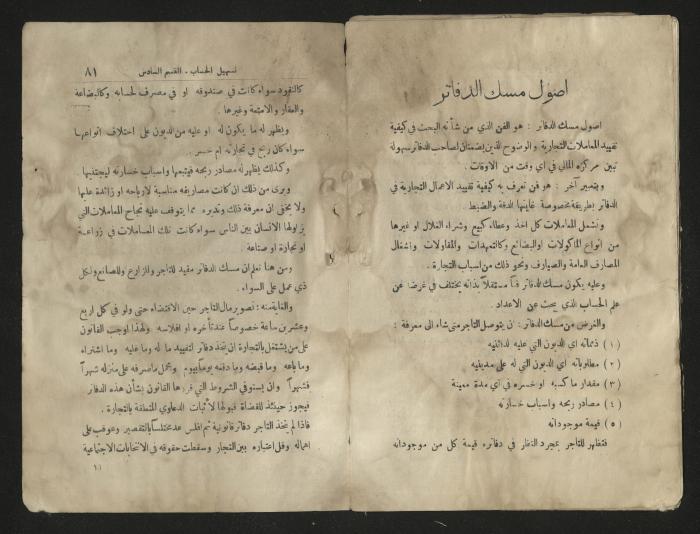 اصول مسك الدفاتر
اصول مسك الدفاتر : هو الفن الذي من شأنه البحث في كيفية
تقييد المعاملات التجارية والوضوح اللذين يضمنان لصاحب الدفاتر سهولة
تبين مركزه المالي في اي وقت من الاوقات .
وبتعبير آخر : هو فن تعرف به كيفية تقييد الاعمال التجارية في
الدفاتر بطريقة مخصوصة غايتها الدقة والضبط .
وتشمل المعاملات كل اخذ وعطاء كبيع وشراء الغلال او غيرها
من انواع المأكولات والبضائع وكالتعهدات والمقاولات واشغال
المصارف العامة والصيارف ونحو ذلك من اسباب التجارة .
وعليه يكون مسك الدفاتر فناً مستقلاً بذاته يختلف في غرضه عن
علم الحساب الذي يبحث عن الاعداد .
والغرض من مسك الدفاتر : ان يتوصل التاجر متى شاء الى معرفة :
(١) ذمماته اي الديون التي عليه لدائنيه
(٢) مطلوباته اي الديون التي له على مدينيه
(٣) مقدار ما كسبه او خسره في اي مدة معينة
(٤) مصادر ربحه واسباب خسارته
(٥) قيمة موجوداته
فتظهر للتاجر بمجرد النظر في دفاتره قيمة كل من موجوداته
تسهيل الحساب - القسم السادس ٨١
كالنقود سواء كانت في صندوقه او في مصرف لحسابه وكالبضاعة
والعقار والامتعة وغيرها .
ويظهر له ما يكون له او عليه من الديون على اختلاف انواعها
سواء كان ربح في تجارته ام خسر .
وكذلك يظهر له مصادر ربحه فيتبعها واسباب خسارته ليجتنبها
ويرى من ذلك ان كانت مصاريفه مناسبة لارباحه او زائدة عليها
ولا يخفى ان معرفة ذلك وتدبره مما يتوقف عليه نجاح المعاملات التي
يزاولها الانسان بين الناس سواء كانت تلك المعاملات في زراعة
او تجارة او صناعة .
ومن هنا نعلم ان مسك الدفاتر مفيد للتاجر والمزارع وللصانع ولكل
ذي عمل على السواء .
والغاية منه : تصوير مال التاجر حين الاقتضاء حتى ولو في كل اربع
وعشرين ساعة خصوصاً عند تأخره او افلاسه ولهذا اوجب القانون
على من يشتغل بالتجارة ان يتخذ دفاتر لتقييد ما له وما عليه وما اشتراه
وما باعه وما قبضه وما دفعه يوماً بيوم ومجمل ما صرفه على منزله شهراً
فشهراً وان يستوفي الشروط التي قررها القانون بشأن هذه الدفاتر
فيجوز حينئذ للقضاة قبولها لاثبات الدعاوي المتعلقة بالتجارة .
فاذا لم يتخذ التاجر دفاتر قانونية ثم افلس عد مختلساً بالتقصير وعوقب على
اهماله وقل اعتباره بين التجار وسقطت حقوقه في الانتخابات الاجتماعية